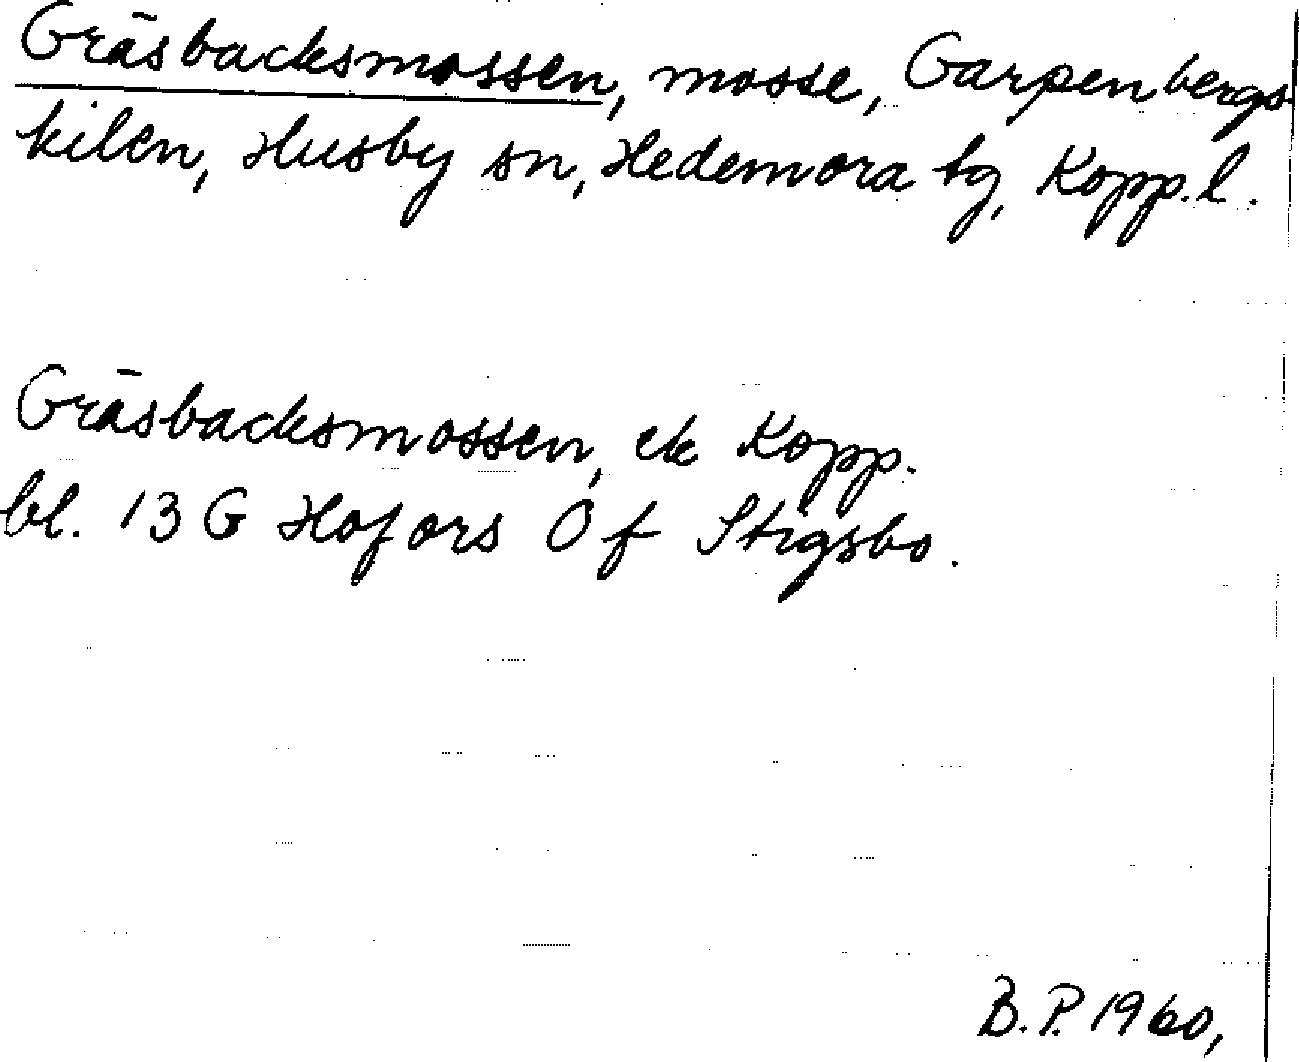 Gräsbacksmossen, mosse, Garpenbergs
kilen, Husby sn, Hedemora tg, Kopp. l.
Gräsbacksmossen, ek Kopp.
bl. 13 G Hofors Ö f Stigsbo.
B. P. 1960,